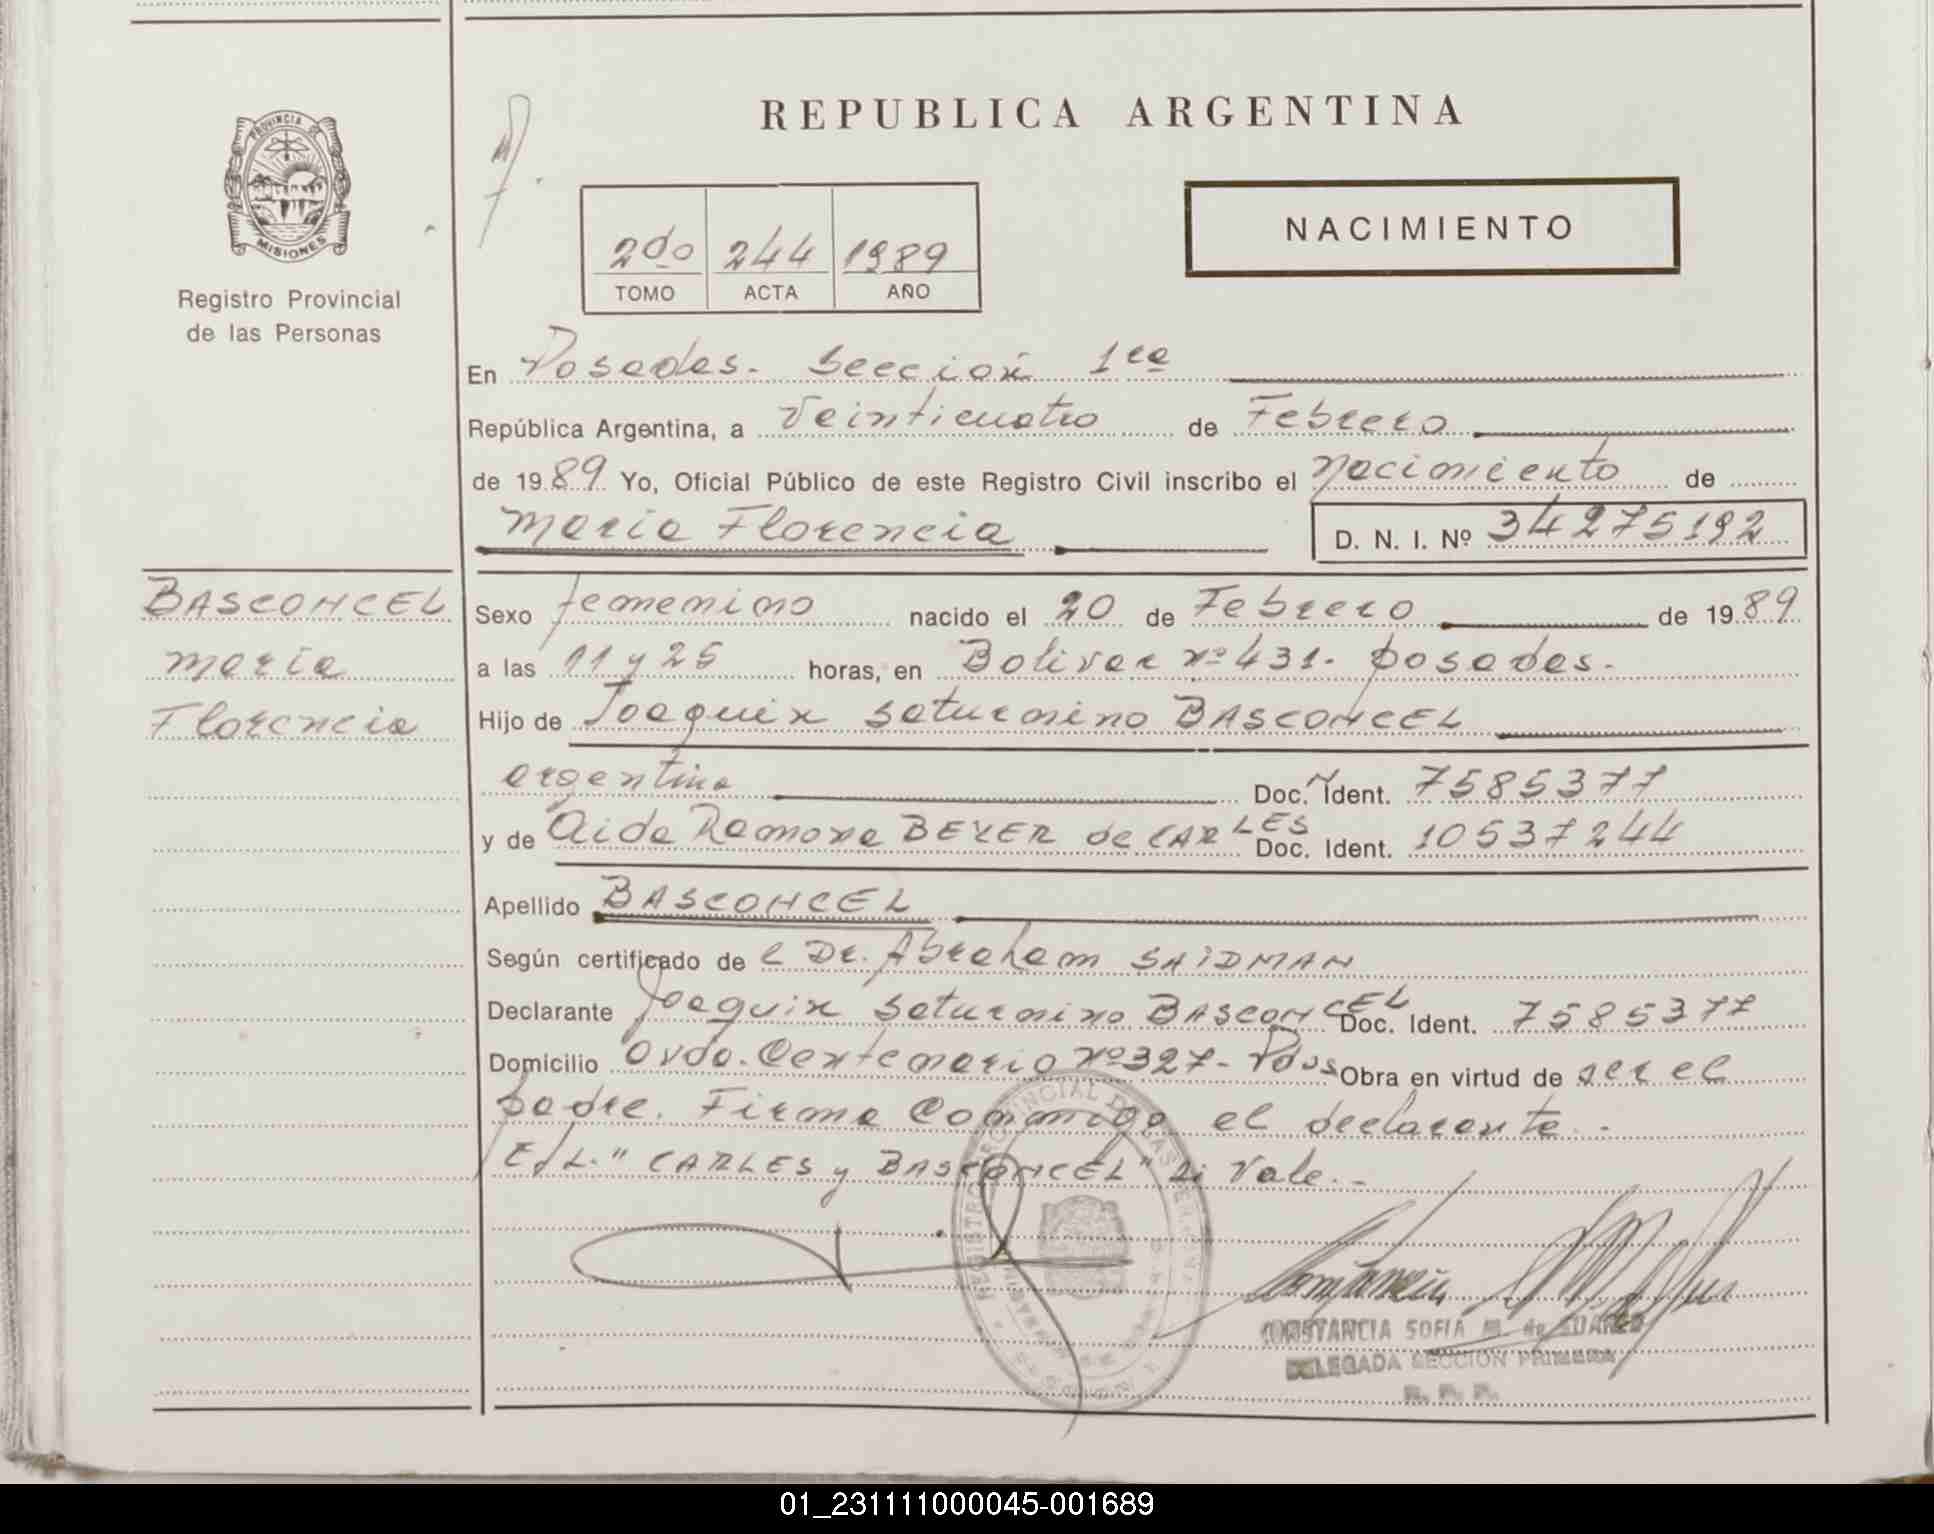 REPUBLICA ARGENTINA
PROVINCIA DE
MISIONES
Registro Provincial
de las Personas
NACIMIENTO
2do 244 1989
TOMO ACTA AÑO
En Posadas. Sección 1ra
República Argentina, a Veinticuatro de Febrero
de 1989 Yo, Oficial Público de este Registro Civil inscribo el nacimiento de
Maria Florencia D. N. I. Nº 34275192
BASCONCEL
Maria
Florencia
Sexo femenino nacido el 20 de Febrero de 1989
a las 11 y 25 horas, en Bolivar nº 431. posadas.
Hijo de Joaquin Saturnino BASCONCEL
argentina Doc. Ident. 7585377
y de Aida Ramona BEXER de CARLES Doc. Ident. 10537244
Apellido BASCONCEL
Según certificado de l Dr. Abraham SAIDMAN
Declarante Joaquin Saturnino BASCONCEL Doc. Ident. 7585377
Domicilio Avda. Centenario nº 327- Pdas Obra en virtud de ser el
padre. Firma Conmigo el declarante.-
E/L. "CARLES y BASCONCEL" Si Vale.-
CONSTANCIA SOFIA M. de SUAREZ
DELEGADA SECCION PRIMERA
R. P. P.
01_231111000045-001689